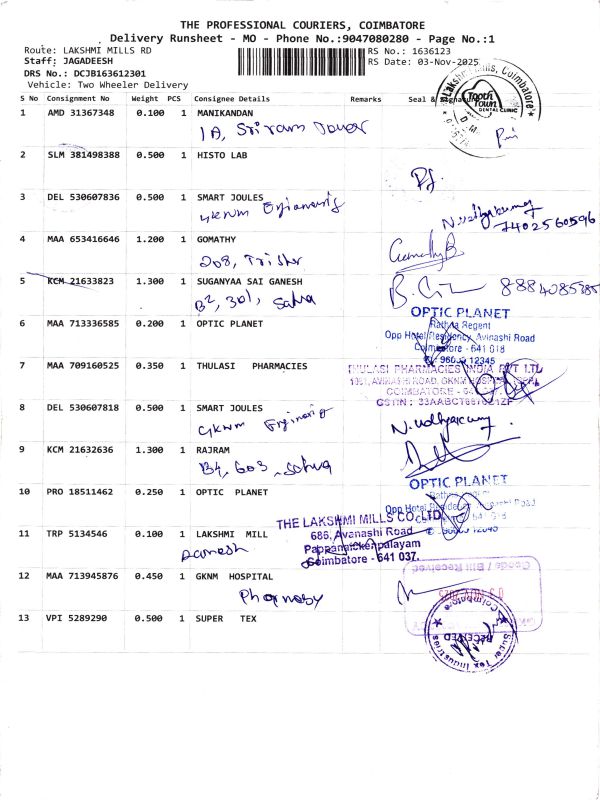 THE PROFESSIONAL COURIERS, COIMBATORE
Delivery Runsheet - MO - Phone No.:9047080280 - Page No.:1
Route: LAKSHMI MILLS RD
RS No.: 1636123
Staff: JAGADEESH
RS Date: 03-Nov-2025
DRS No.: DCJB163612301
Vehicle: Two Wheeler Delivery
S No Consignment No Weight PCS Consignee Details Remarks Seal & Signature
Lakshmi Mills, Coimbatore
Tooth Town
DENTAL CLINIC
1 AMD 31367348 0.100 1 MANIKANDAN
1A, Sriram Tower
2 SLM 381498388 0.500 1 HISTO LAB
3 DEL 530607836 0.500 1 SMART JOULES
N.udhyakumar
7402560596
4 MAA 653416646 1.200 1 GOMATHY
208, Trishr
Gomathy B
5 KCM 21633823 1.300 1 SUGANYAA SAI GANESH
B2, 301, Sahva
6 MAA 713336585 0.200 1 OPTIC PLANET
OPTIC PLANET
Rathna Regent
Opp Hotel Residency, Avinashi Road
Coimbatore - 641 018
7 MAA 709160525 0.350 1 THULASI PHARMACIES
THULASI PHARMACIES INDIA PVT LTD
COIMBATORE
8 DEL 530607818 0.500 1 SMART JOULES
GKNM
N.udhyakumar
9 KCM 21632636 1.300 1 RAJRAM
B4, 603, Sahva
10 PRO 18511462 0.250 1 OPTIC PLANET
OPTIC PLANET
11 TRP 5134546 0.100 1 LAKSHMI MILL
THE LAKSHMI MILLS CO LTD
686, Avanashi Road
Pappanaickenpalayam
Coimbatore - 641 037.
12 MAA 713945876 0.450 1 GKNM HOSPITAL
Pharmacy
Goods / Bill Received
13 VPI 5289290 0.500 1 SUPER TEX
Super Tex Industries
Coimbatore
RECEIVED